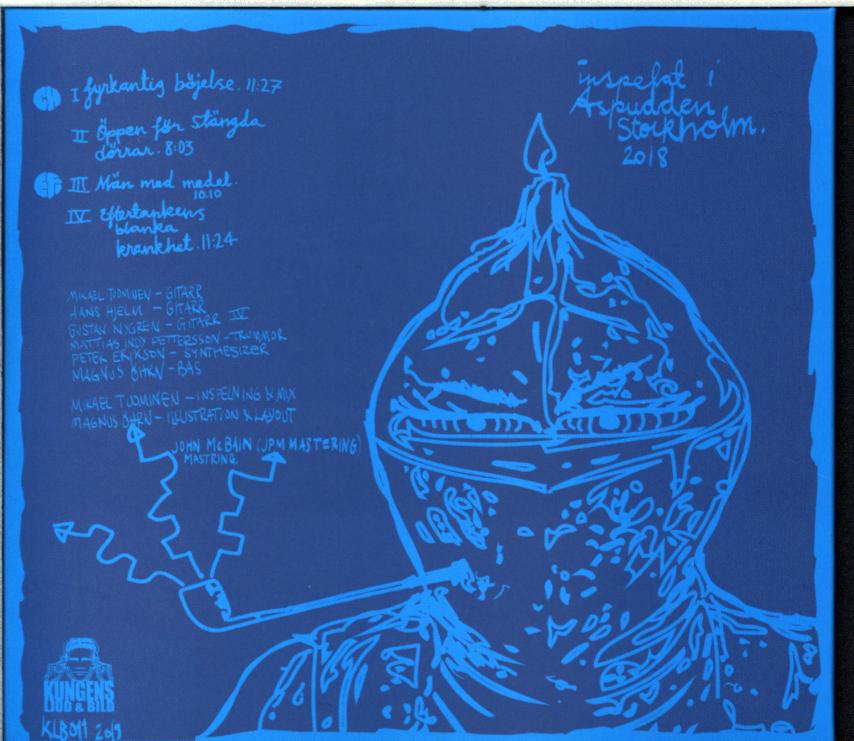 I fyrkantig böjelse. 11:27
II Öppen för stängda
dörrar. 8:03
III Män med medel.
10.10
IV Eftertankens
blanka
krankhet. 11:24
inspelat i
Aspudden
Stockholm.
2018
MIKAEL TUOMINEN – GITARR
HANS HJELM – GITARR
GUSTAV NYGREN – GITARR IV
MATTIAS INDY PETTERSSON – TRUMMOR
PETER ERIKSON – SYNTHESIZER
MAGNUS ÖHRN – BAS
MIKAEL TUOMINEN – INSPELNING & MIX
MAGNUS ÖHRN – ILLUSTRATION & LAYOUT
JOHN McBAIN (JPM MASTERING)
MASTRING.
KUNGENS
LJUD & BILD
KLB011 2019